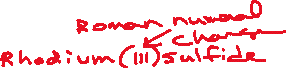 Roman numeral
charge
Rhodium(III)sulfide